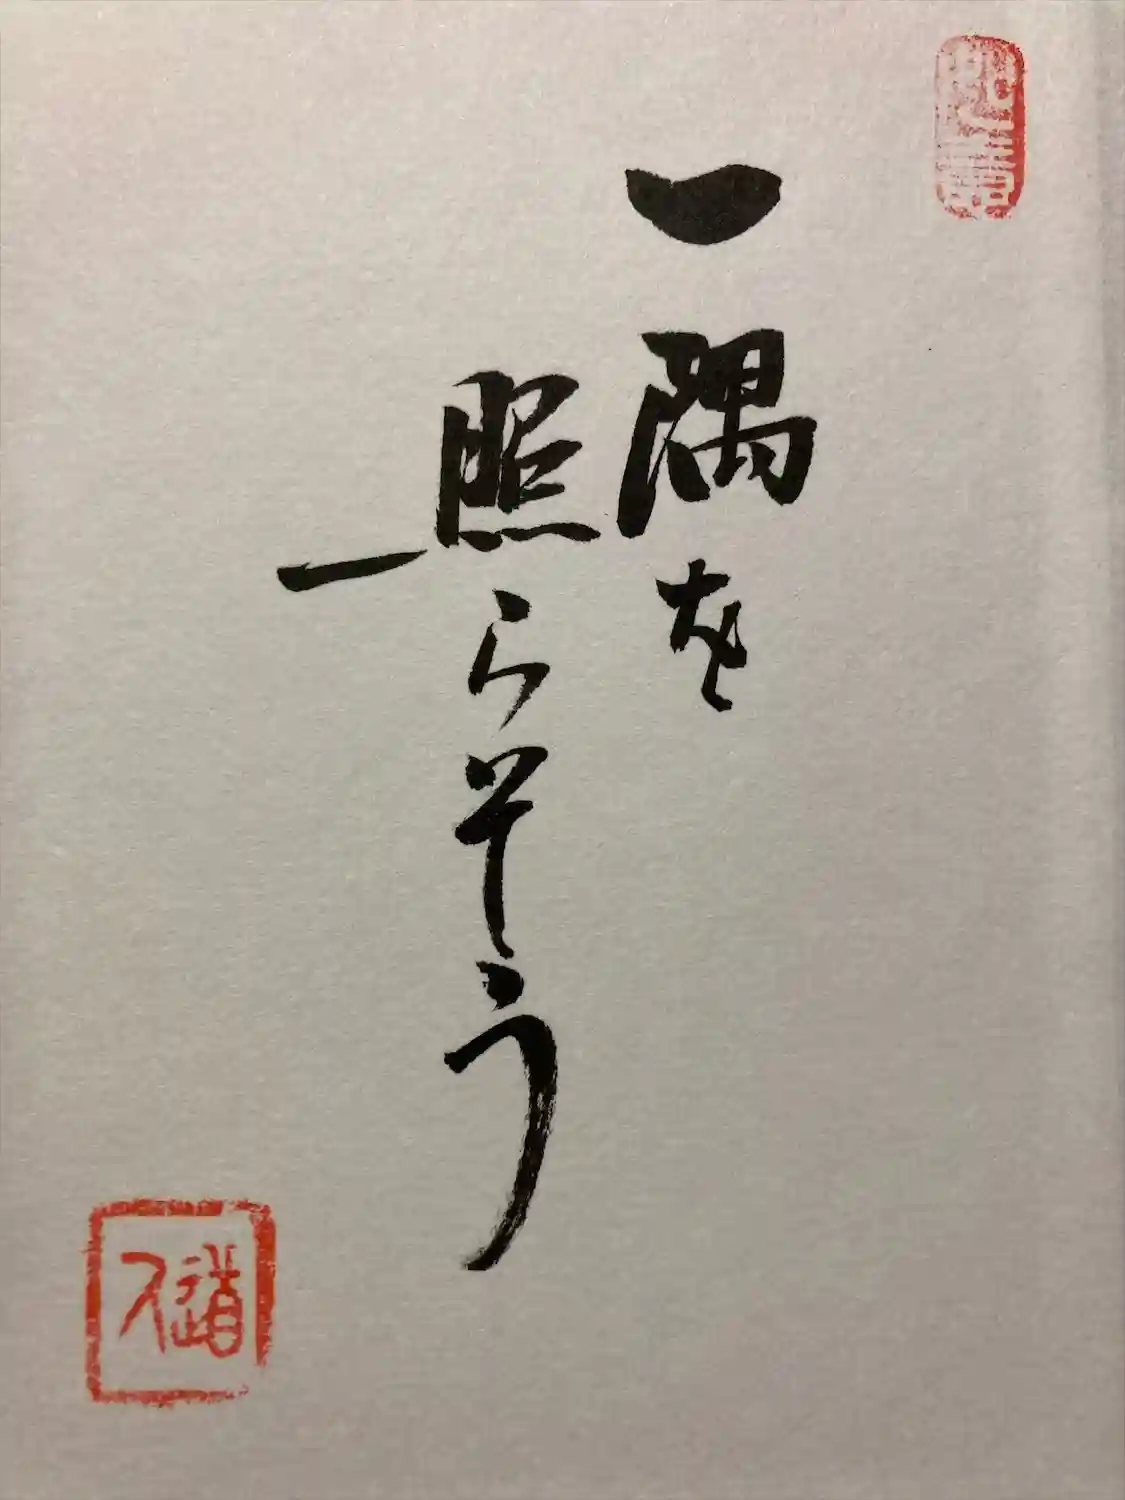 一隅を
照らそう
道人